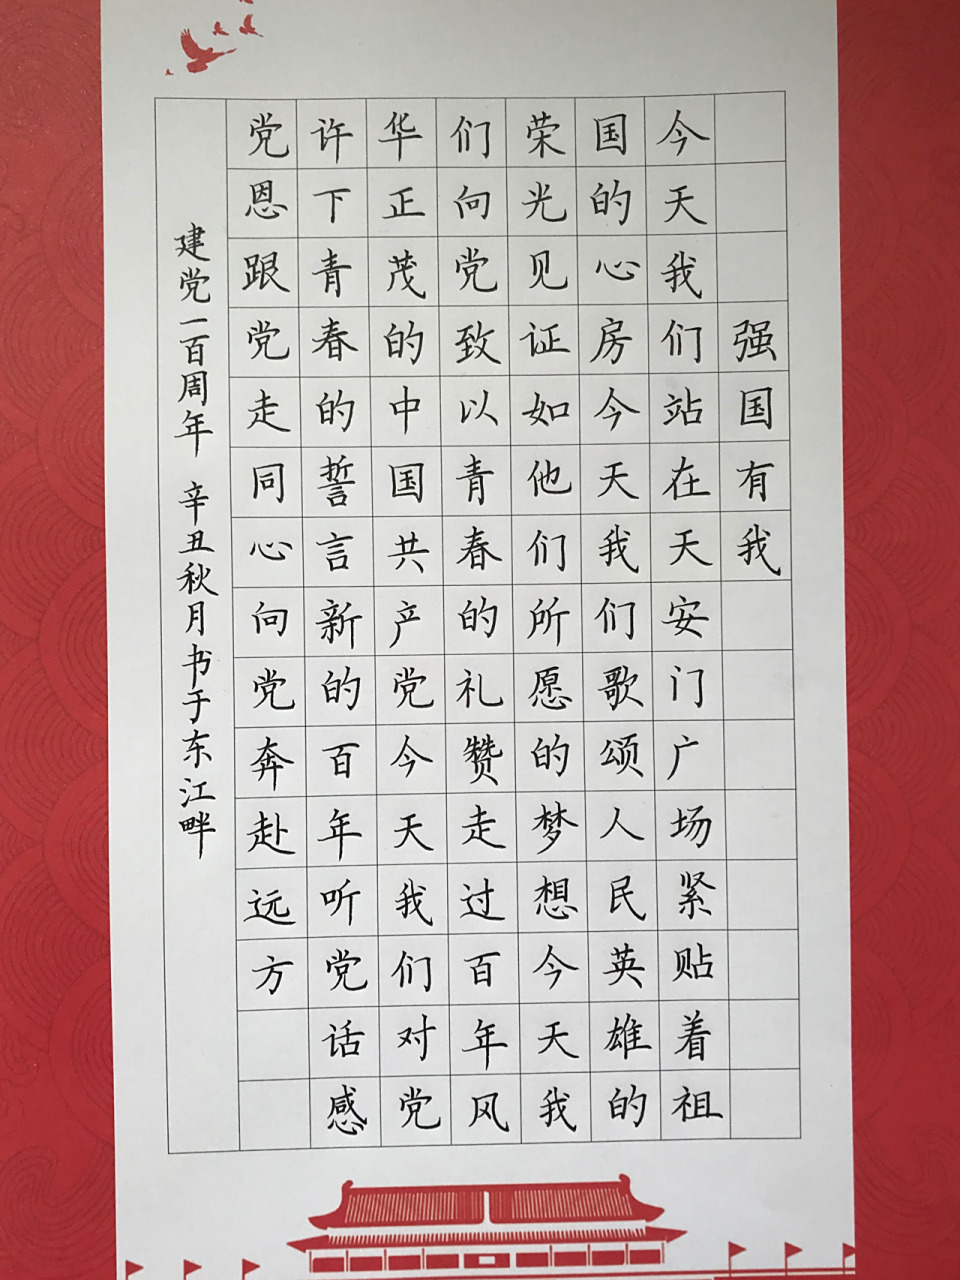 强国有我
今天我们站在天安门广场紧贴着祖
国的心房今天我们歌颂人民英雄的
荣光见证如他们所愿的梦想今天我
们向党致以青春的礼赞走过百年风
华正茂的中国共产党今天我们对党
许下青春的誓言新的百年听党话感
党恩跟党走同心向党奔赴远方
建党一百周年 辛丑秋月书于东江畔